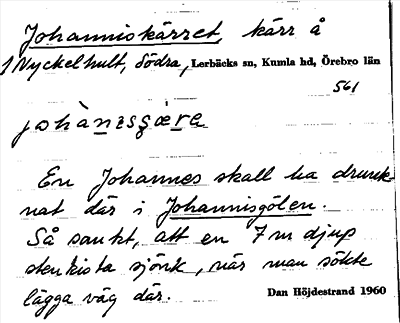 Johanniskärret, kärr å
1 Nyckelhult, Södra, Lerbäcks sn, Kumla hd, Örebro län
561
johànisçæ̀re
En Johannes skall ha drunk-
nat där i Johannisgölen.
Så sankt, att en 7 m djup
stenkista sjönk, när man sökte
lägga väg där.
Dan Höjdestrand 1960